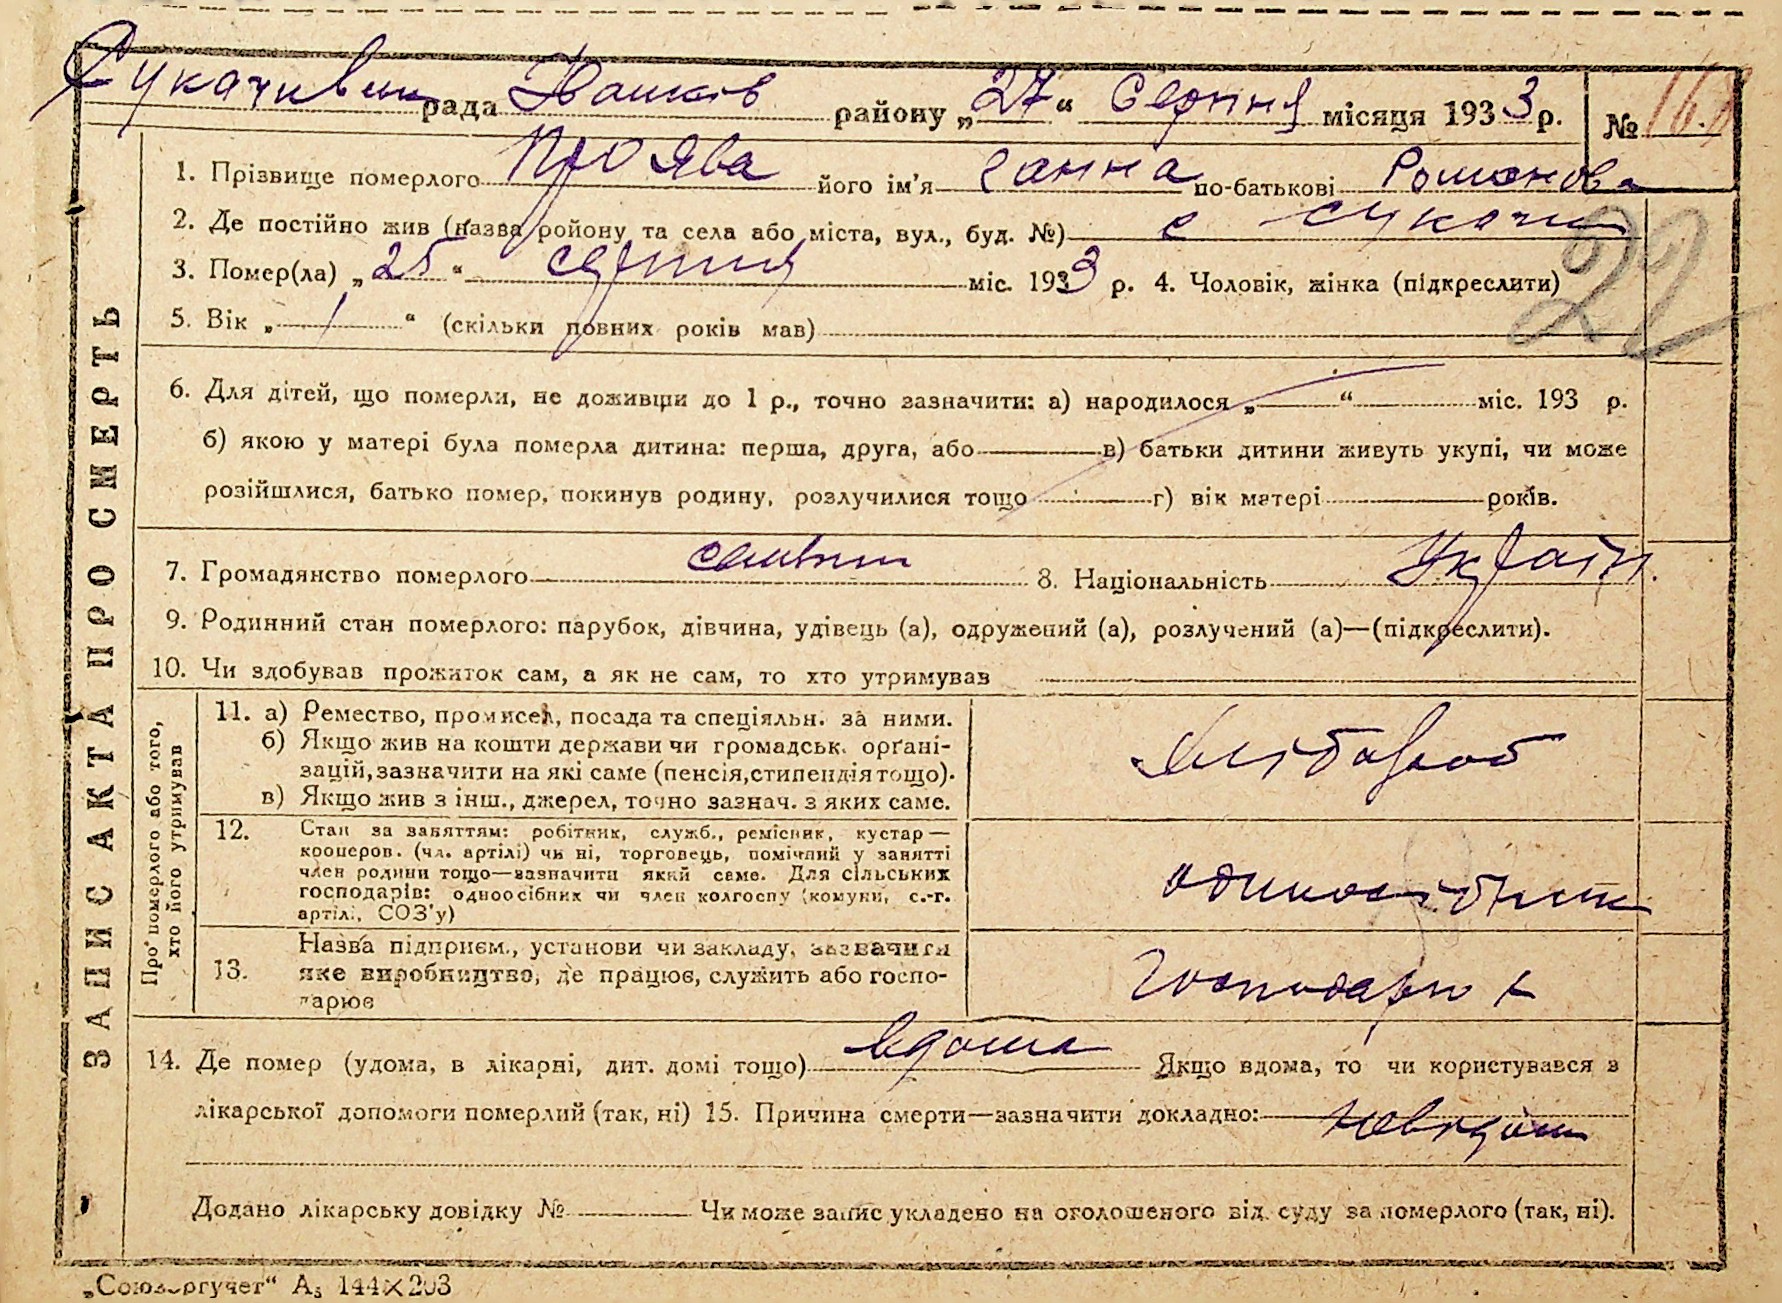 Сукачивськ рада Іванків району „27“ Серпня місяця 1933 р. №
1. Прізвище померлого Проява його ім'я Ганна по-батькові Романова
2. Де постійно жив (назва ройону та села або міста, вул., буд. №) с Сукачи
3. Помер(ла) „25“ серпня міс. 1933 р. 4. Чоловік, жінка (підкреслити)
22
5. Вік „1“ (скільки повних років мав)
6. Для дітей, що померли, не доживши до 1 р., точно зазначити: а) народилося „ “ міс. 193 р.
б) якою у матері була померла дитина: перша, друга, або в) батьки дитини живуть укупі, чи може
розійшлися, батько помер, покинув родину, розлучилися тощо г) вік матері років.
7. Громадянство померлого 8. Національність Україн.
9. Родинний стан померлого: парубок, дівчина, удівець (а), одружений (а), розлучений (а)—(підкреслити).
10. Чи здобував прожиток сам, а як не сам, то хто утримував
ЗАПИС АКТА ПРО СМЕРТЬ
Про померлого або того,
хто його утримував
11. а) Ремество, промисел, посада та спеціяльн. за ними.
б) Якщо жив на кошти держави чи громадськ. орґані-
зацій, зазначити на які саме (пенсія, стипендія тощо).
в) Якщо жив з інш., джерел, точно зазнач. з яких саме.
Хлібороб
12. Стан за заняттям: робітник, служб., ремісник, кустар—
кооперов. (чл. артілі) чи ні, торговець, помічний у занятті
член родини тощо—зазначити який саме. Для сільських
господарів: одноосібник чи член колгоспу (комуни, с.-г.
артілі, СОЗ'у)
одиносібник
13. Назва підприєм., установи чи закладу, зазначити
яке виробництво, де працює, служить або госпо-
дарює
14. Де помер (удома, в лікарні, дит. домі тощо) вдома Якщо вдома, то чи користувався з
лікарської допомоги померлий (так, ні) 15. Причина смерти—зазначити докладно: невідом
Додано лікарську довідку № Чи може запис укладено на оголошеного від. суду за померлого (так, ні).
„Союзоргучет“ А₅ 144×203